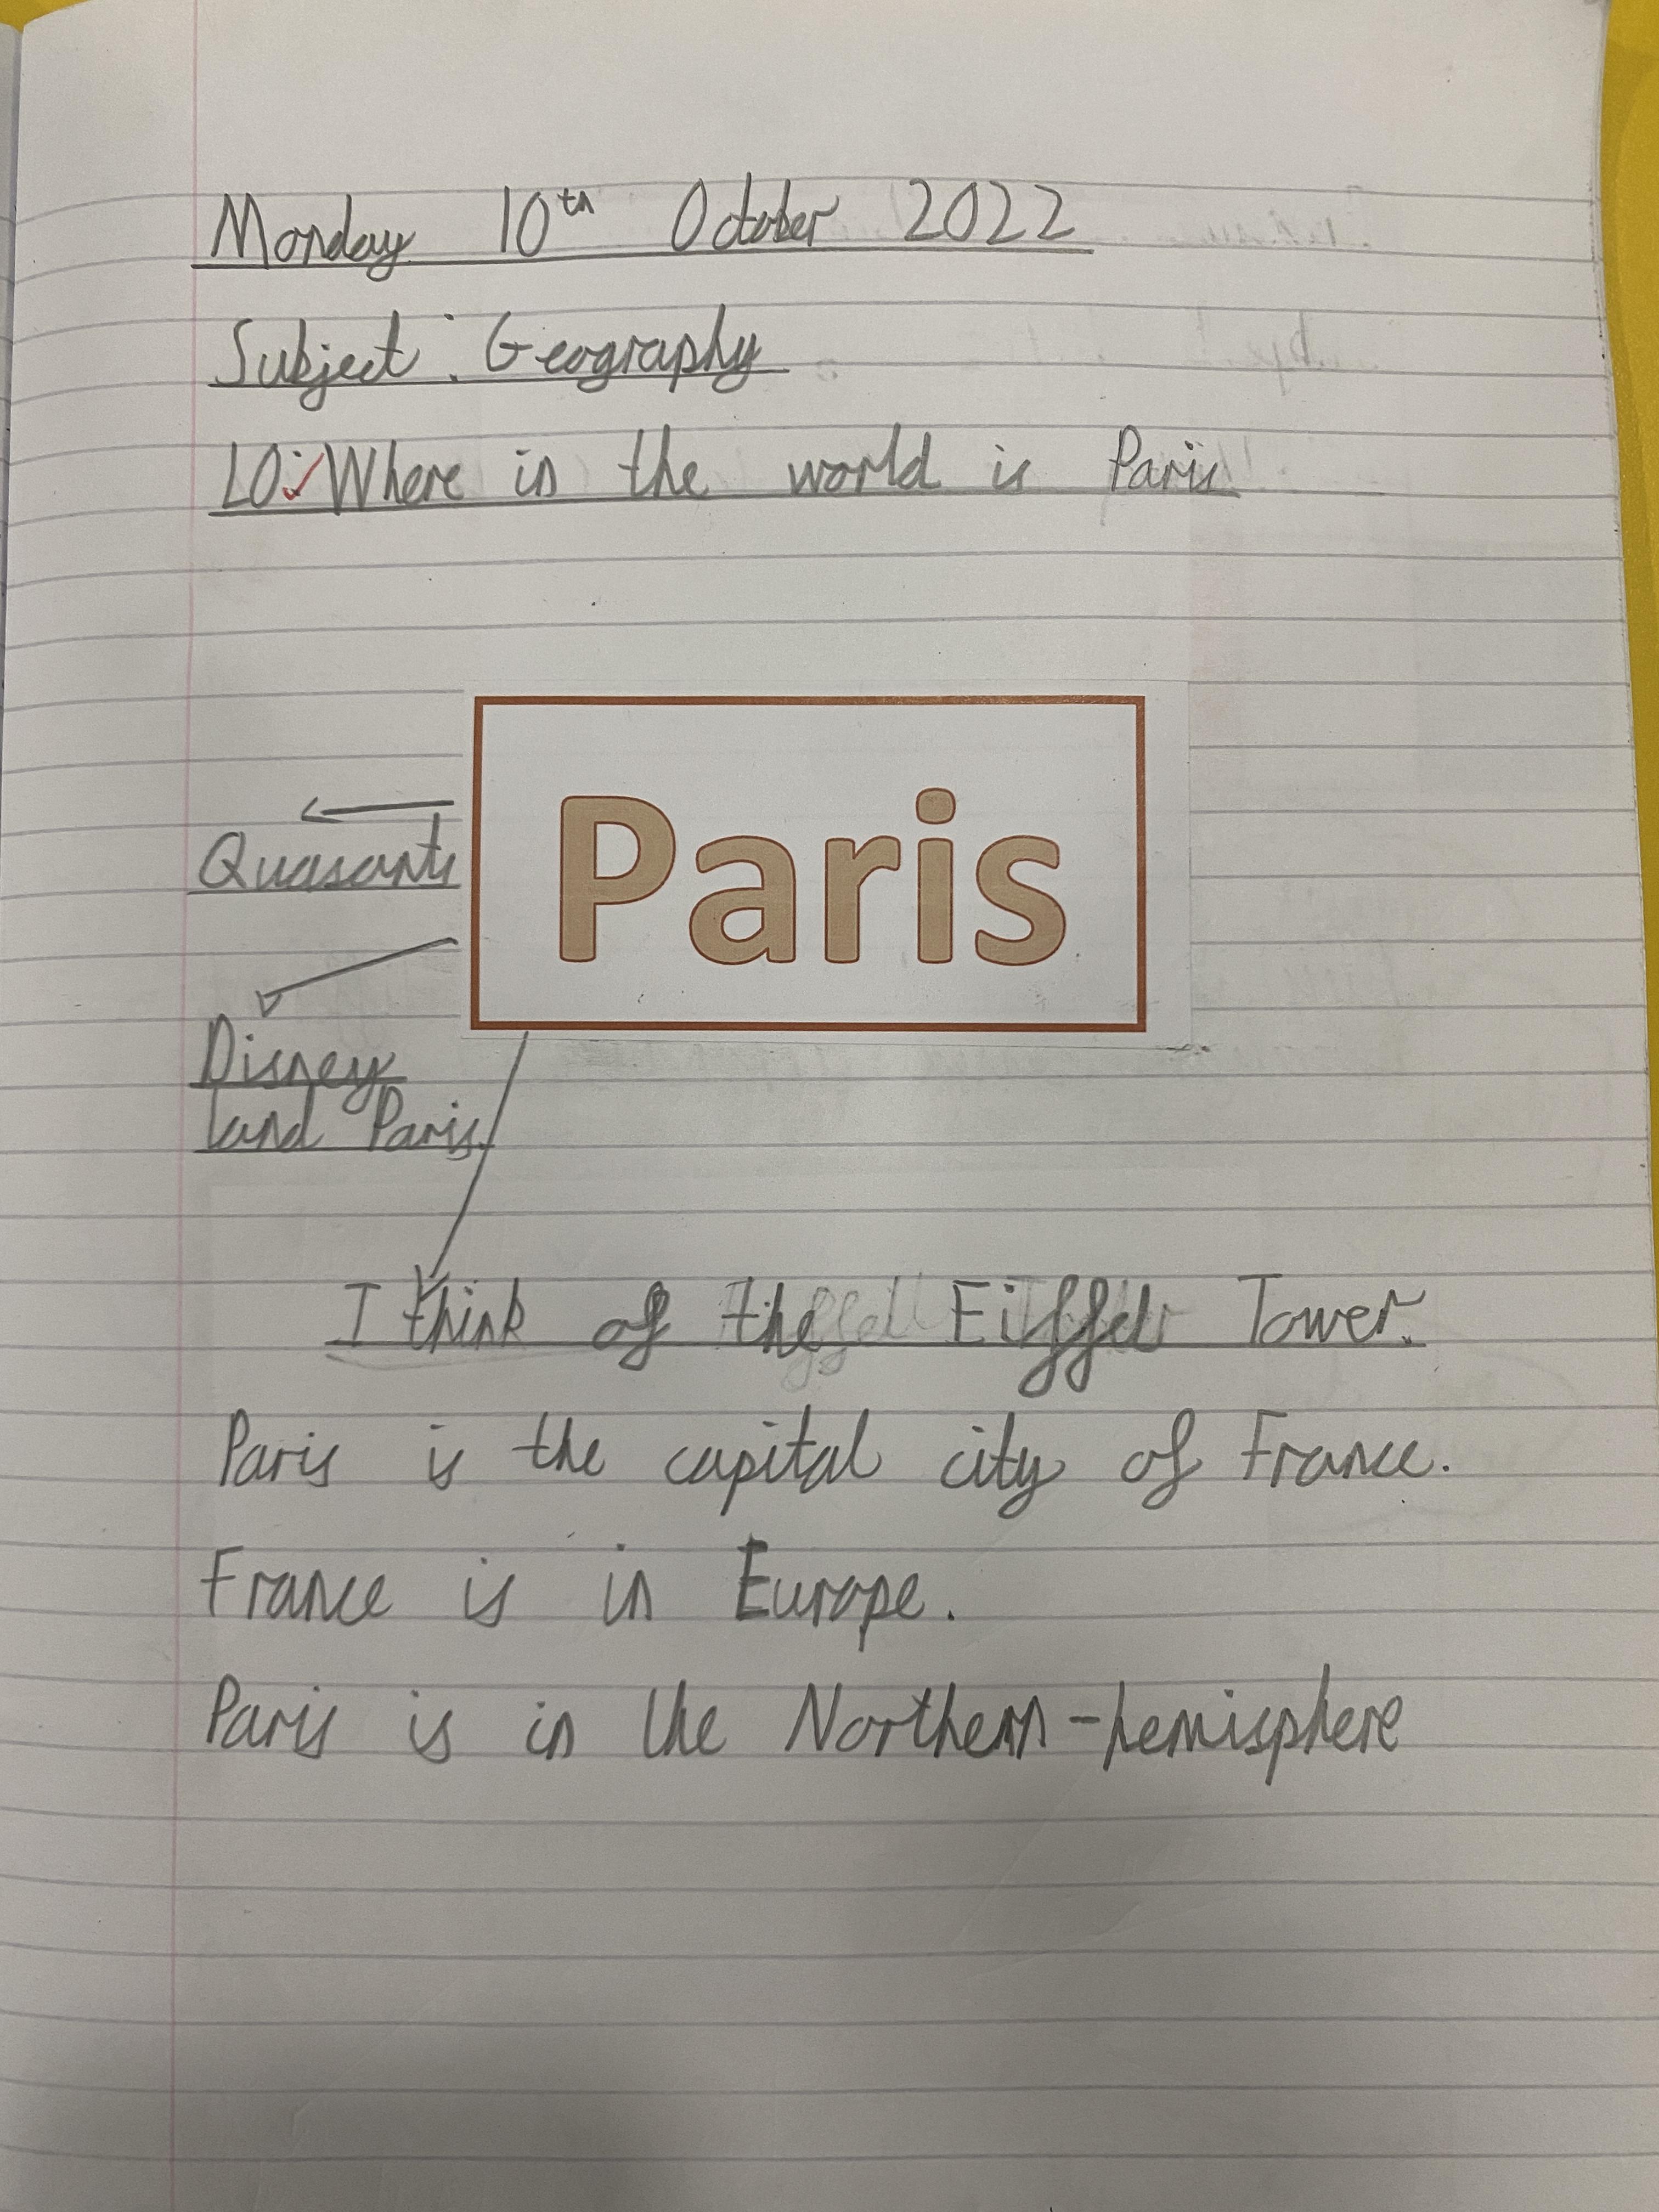 Monday 10th October 2022
Subject: Geography
LO: Where in the world is Paris
Paris
Quasants
Disney
land Paris.
I think of the Eiffel Tower.
Paris is the capital city of France.
France is in Europe.
Paris is in the Northern-hemisphere